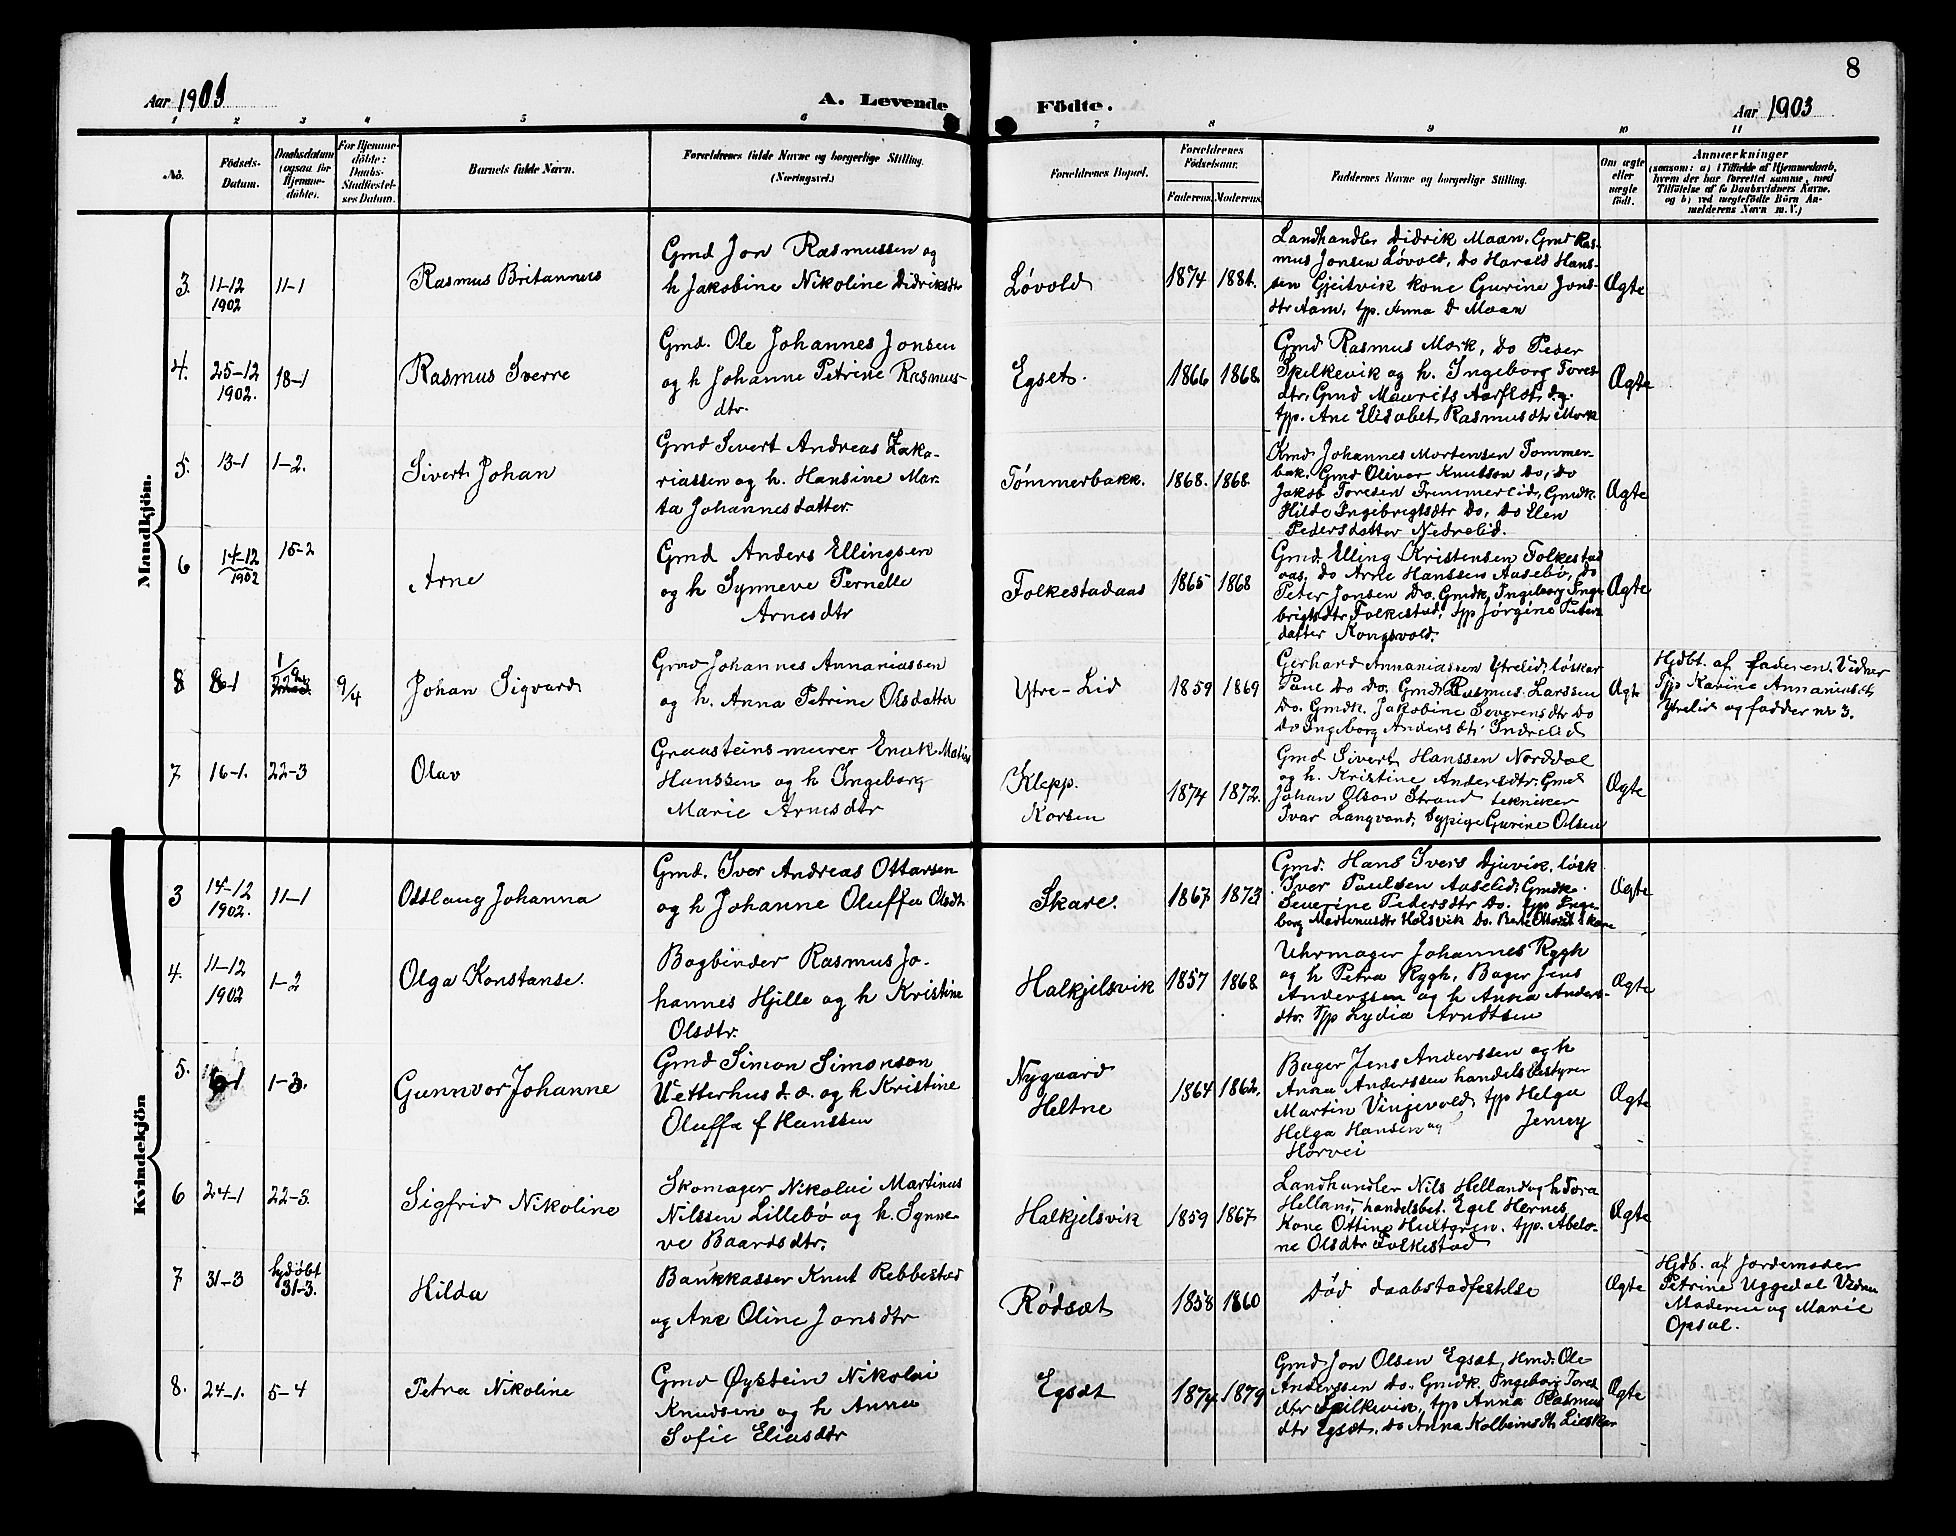 8
Aar 1903
A. Levende
Födte.
Aar 1903
1 2 3 4 5 6 7 8 9 10 11
No.
Födsels-
Datum.
Daabsdatum
(ogsaa for
Hjemme-
döbte).
For Hjemme-
döbte:
Daabs-
Stadfæstel-
ses Datum.
Barnets fulde Navn.
Forældrenes fulde Navne og borgerlige Stilling.
(Næringsvei.)
Forældrenes Bopæl.
Forældrenes
Födselsaar.
Faderens. Moderens.
Faddernes Navne og borgerlige Stilling.
Om ægte
eller
uægte
födt.
Anmærkninger
(saasom: a) i Tilfælde af Hjemmedaab,
hvem der har forrettet samme, med
Tilföielse af to Daabsvidners Navne,
og b) ved uægtefödte Börn An-
melderens Navn m. V.)
Mandkjön.
3. 11-12
1902
11-1
Rasmus Britannus
Gmd Jon Rasmussen og
h Jakobine Nikoline Didriksdtr
Løvold
1874 1881.
Landhandler Didrik Maan, Gmd Ras-
mus Jonsen Løvold, Do Harald Hans-
sen Gjeitvik kone Gurine Jons-
dtr Aam, tjp. Anna D Maan
Ægte
4. 25-12
1902.
18-1
Rasmus Sverre
Gmd. Ole Johannes Jonsen
og h Johanne Petrine Rasmus-
dtr.
Egset.
1866 1868.
Gmd Rasmus Mork, Do Peder
Spilkevik og h. Ingeborg Tores
dtr, Gmd Maurits Aarflot, d.y.
tjp. Ane Elisabet Rasmusdtr Mork
Ægte
5. 13-1 1-2.
Sivert Johan
Gmd Sivert Andreas Zaka-
riassen og h. Hansine Mar-
ta Johannesdatter.
Tømmerbakk.
1868. 1868.
Kmd Johannes Mortensen Tømmer-
bak. Gmd Oliver Knutsen Do, Do
Jakob Toresen Tremmerlid, Gmdk.
Hilde Ingebrigtsdtr Do, Do Elen
Pedersdatter Nedrelid.
Ægte
6 14-12
1902
15-2
Arne
Gmd Anders Ellingsen
og h Synneve Pernelle
Arnesdtr
Folkestadaas
1865 1868
Gmd. Elling Kristensen Folkestad
aas, do Arne Hanssen Aasebø, Do
Peter Jonsen Do. Gmdk, Ingeborg Inge
brigtsdtr Folkestad, tjp Jørgine Peters
datter Kongsvold.
Ægte
8 6-1 9/4
Johan Sigvard
Gmd Johannes Annaniassen
og h. Anna Petrine Olsdatter
Ytre-Lid
1859 1869
Gerhard Annaniassen Ytrelid, løskar
Tane Do do, Gmd Rasmus Larssen
Do. Gmdk. Jakobine Severensdtr Do
Do Ingeborg Andersdtr Indrelid
Ægte
Hjdbt. af faderen. Vidner
Tjp Karine Annaniasdtr
Ytrelid og fadder nr 3.
7 16-1. 22-3
Olav
Graasteinsmurer Enok Matias
Hanssen og h Ingeborg
Marie Arnesdtr
Klepp.
Korsen
1874 1872.
Gmd Sivert Hanssen Norddal
og h. Kristine Andersdtr. Gmd
Johan Olson Strand tekniker
Ivar Langvand, Sypige Gurine Olsen
Ægte
Kvindekjön
3 14-12
1902.
11-1
Oddlaug Johanna
Gmd. Iver Andreas Ottarsen
og h Johanne Oluffa Olsdtr
Skare.
1867 1873
Gmd. Hans Ivers Djuvik, løsk
Iver Paulsen Aaselid, Gmdk.
Severine Pedersdtr Do. tjp Inge-
borg Martinusdtr Holsvik Do.
Ægte
4. 11-12
1902
1-2
Olga Konstanse.
Bogbinder Rasmus Jo-
hannes Hjelle og h Kristine
Olsdtr.
Halkjelsvik
1857 1868
Uhrmager Johannes Rygh
og h Petra Rygh, Bager Jens
Anderssen og h Anna Anders-
dtr. Tjp Lydia Arndtsen
Ægte
5. 1-3.
Gunnvor Johanne
Gmd Simon Simonson
Vetterhus d. æ. og h Kristine
Oluffa f Hanssen
Nygaard
Heltne
1864 1862.
Bager Jens Anderssen og h
Anna Anderssen handelsbestyrer
Martin Vinjevold, tjp Helga
Helga Hansen og Jenny
Horvei
Ægte
6 24-1 22-3.
Sigfrid Nikoline
Skomager Nikolai Martinus
Nilssen Lillebø og h. Synne-
ve Baardsdtr.
Halkjelsvik
1859 1867
Landhandler Nils Helland og h Tora
Helland, handelsbet. Egil Hernes,
Kone Ottine Hultgren, tjp. Abelo-
ne Olsdtr Folkestad
Ægte
7 31-3 hjdøbt
31-3.
Hilda
Bankkasser Knut Rebbestad
og Ane Oline Jonsdtr
Rødsæt
1858 1860
Død daabstadfestelse
Ægte
Hjdb. af Jordemoder
Petrine Uggedal Vidner
Moderen og Marie
Opsal.
8. 24-1. 5-4
Petra Nikoline
Gmd Øystein Nikolai
Knudsen og h Anna
Sofie Eliasdtr
Egsæt
1874 1879
Gmd Jon Olsen Egsæt, Hmd. Ole
Anderssen Do. Gmdk. Ingeborg Tores
dtr Spilkevik, tjp Anna Rasmus
dtr Egsæt. Do Anna Kolbeinsdtr Lieskar
Ægte